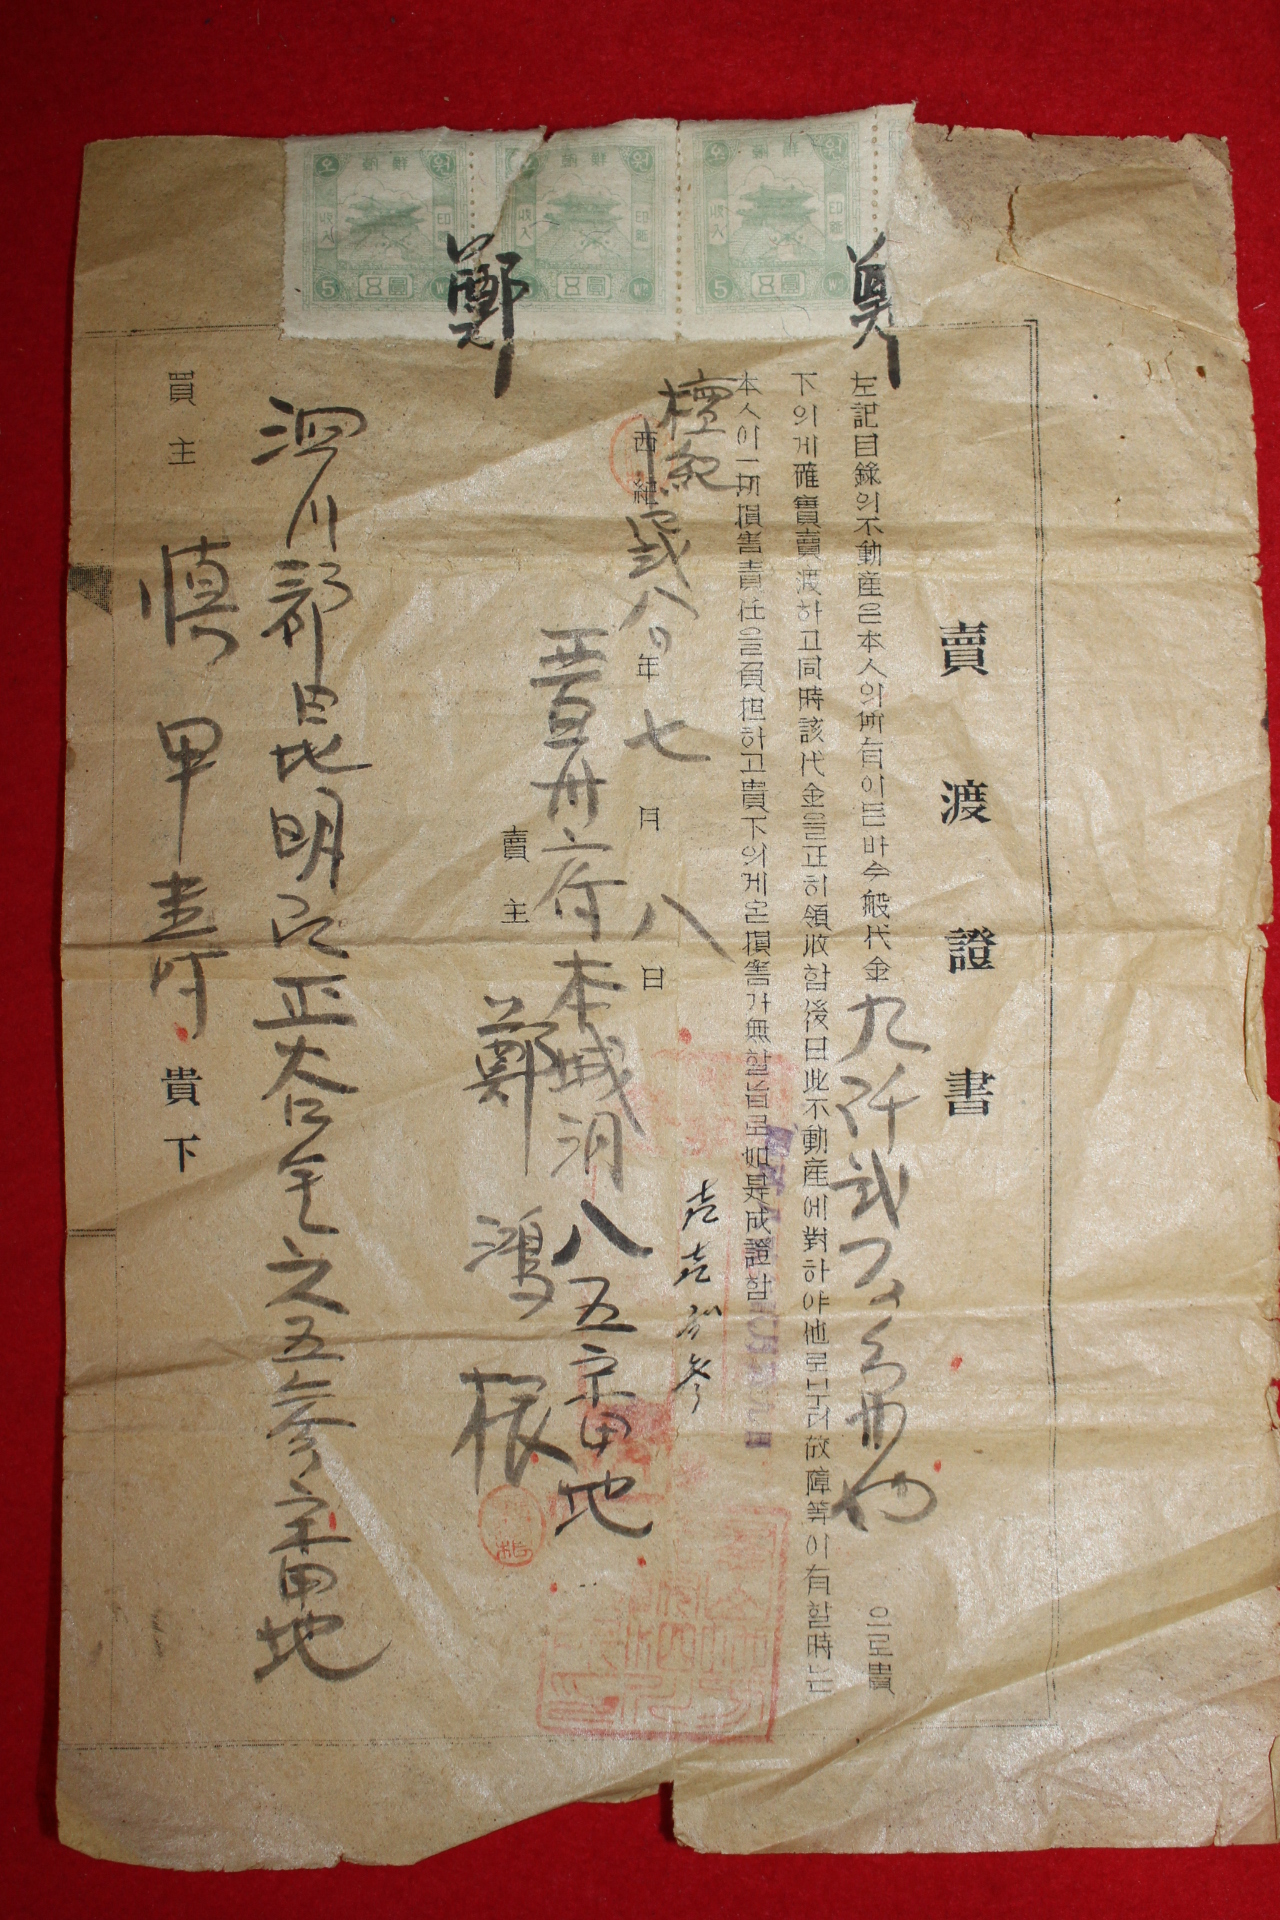 朝鮮
오 원
收入 印紙
5 五圓 Wn
朝鮮
원
印紙
五圓 Wn
오 朝鮮
收入
5 五圓 W
鄭
鄭
賣渡證書
左記目錄의不動産은本人의所有이든바今般代金九仟弐百 으로貴
下의게確實賣渡하고同時該代金을正히領收함後日此不動産에對하야他로부터故障等이有할時는
本人이一切損害責任을負担하고貴下의게은損害가無할旨로如是成證함
檀紀
西紀 八 年 七 月 八 日
壱壱 参
晋州府本城洞八五 番地
賣主 鄭鴻根
泗川郡昆明面正谷 之五参 番地
買主 愼甲 貴下